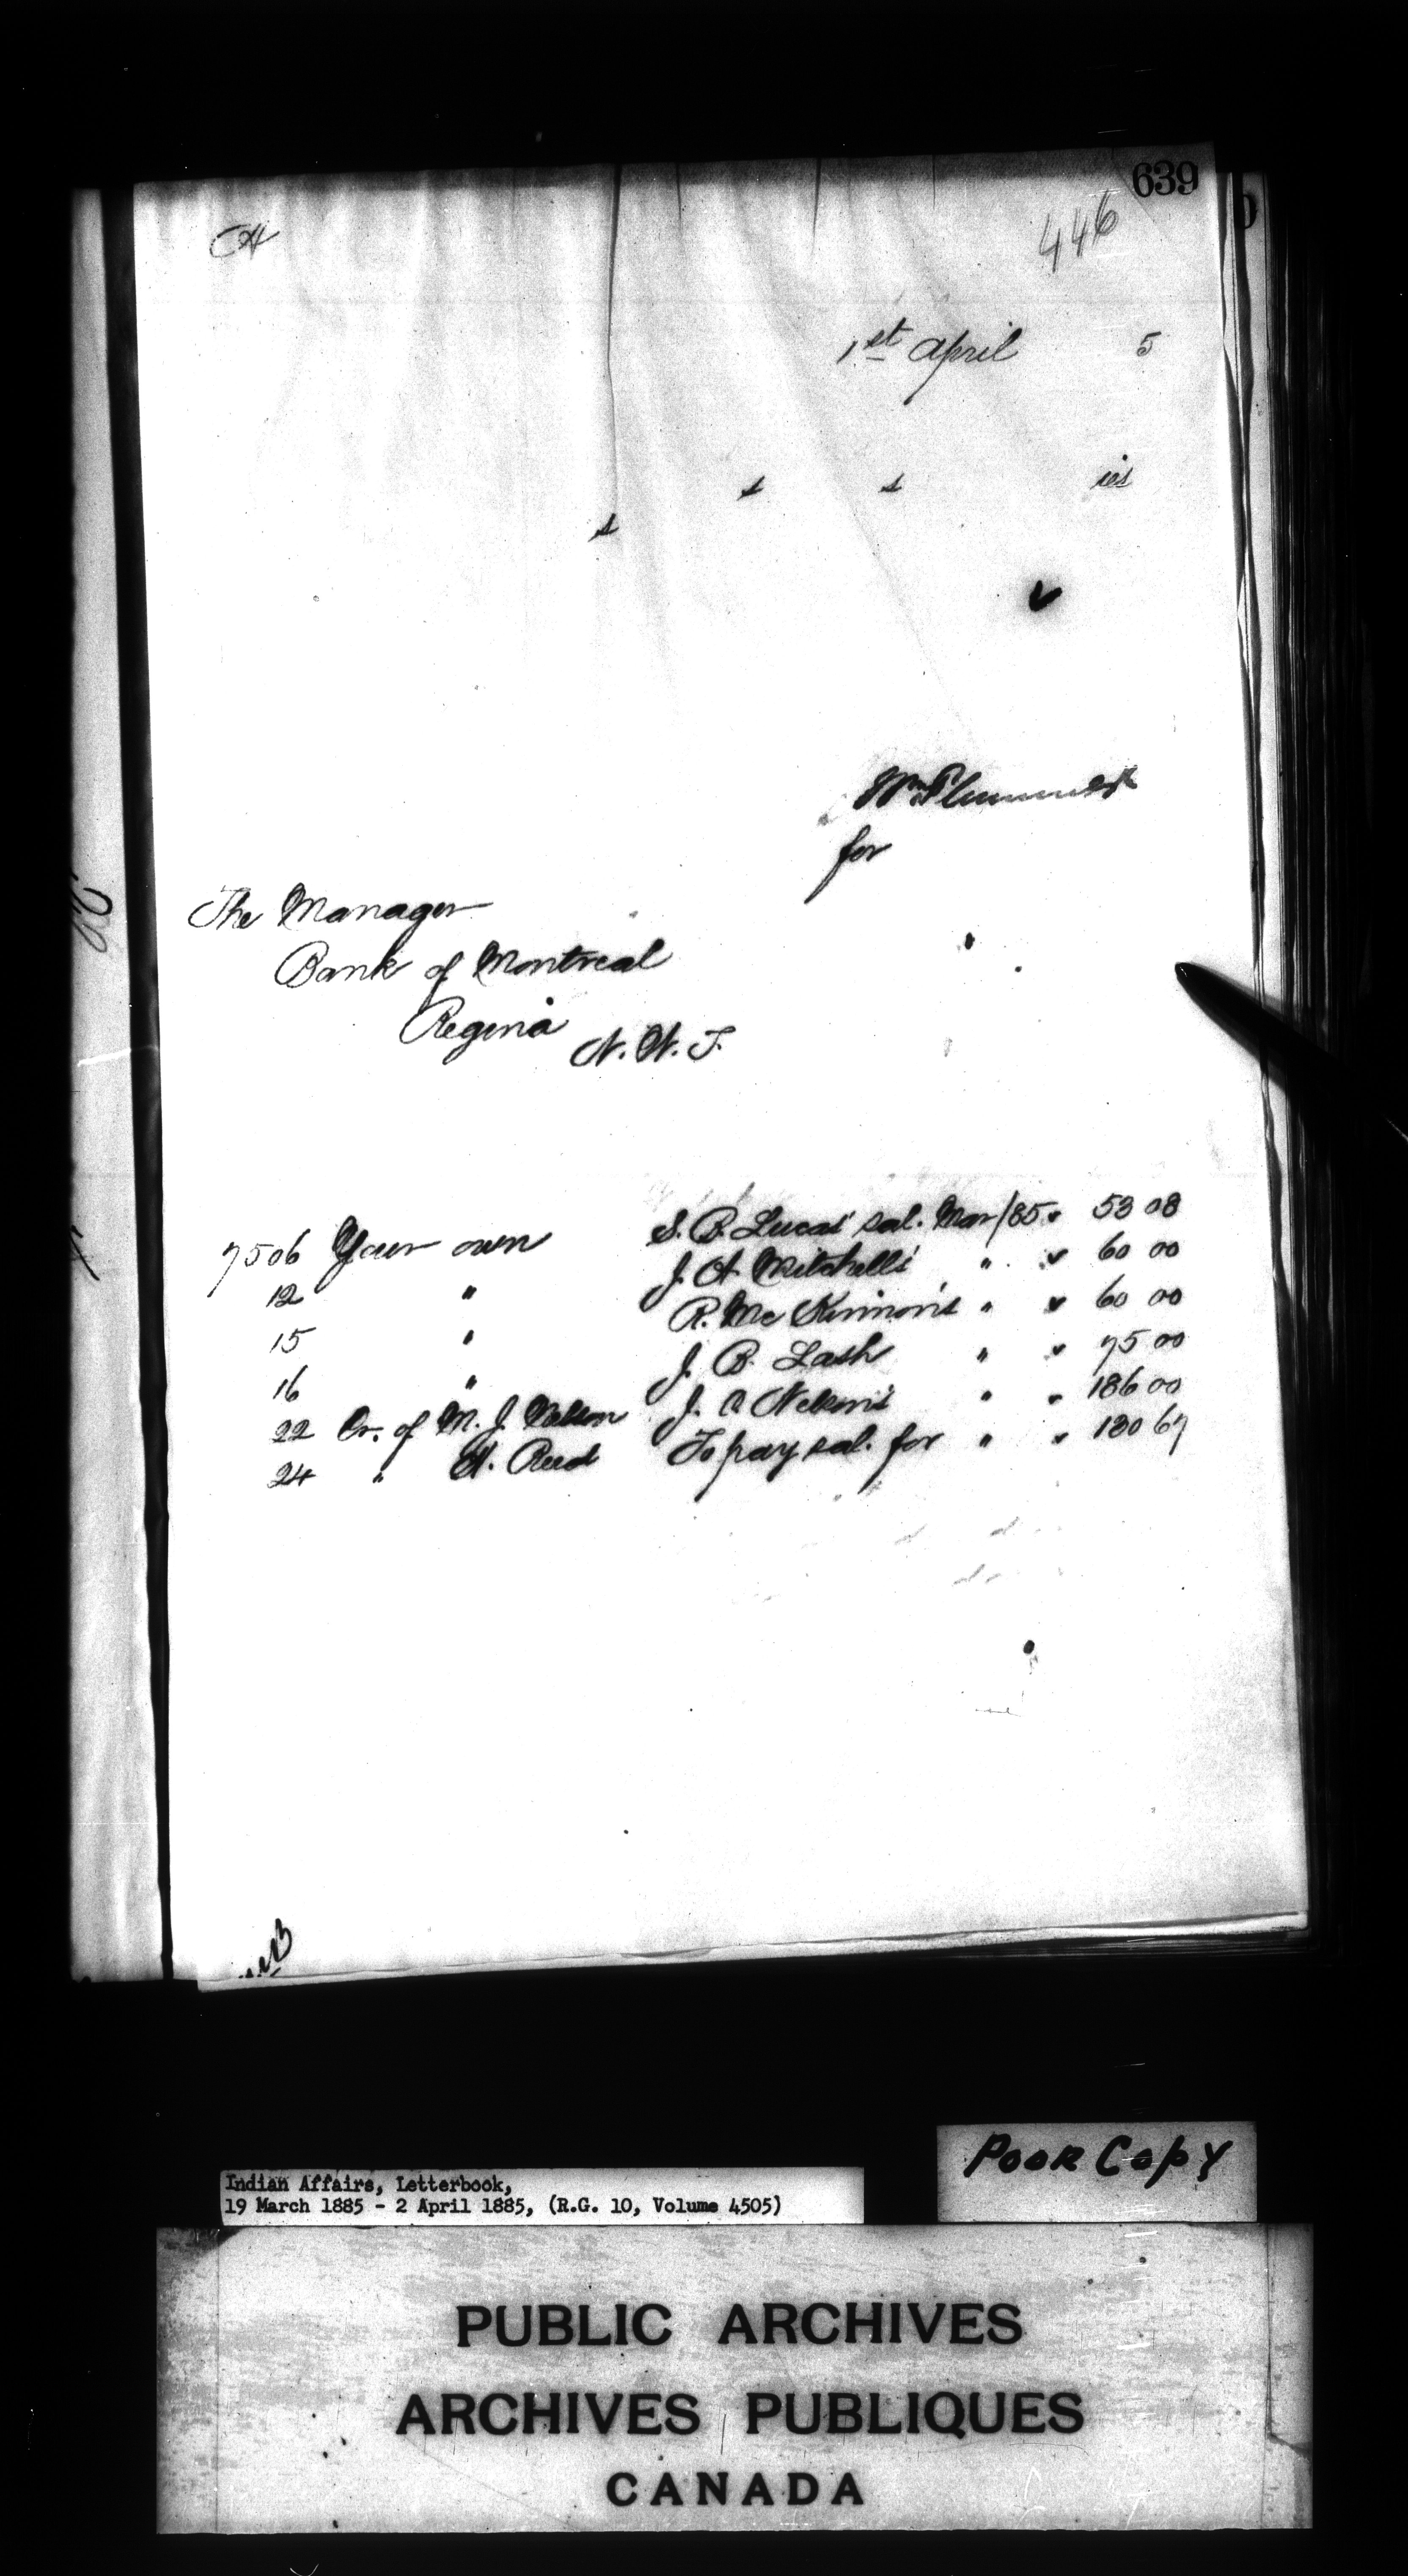 639
446
1st April 5
s s ies
s
Wm Plummer
for
The Manager
Bank of Montreal
Regina
N. W. T.
7506 Your own S. B. Lucas' sal. Mar/85 53 08
12 " J. A. Mitchell's " 60 00
15 " R. McKinnon's " 60 00
16 " J. B. Lash " 75 00
22 Or. of M. J. Nelson J. C. Nelson's " 186 00
24 " H. Reed To pay sal. for " 130 67
Indian Affairs, Letterbook,
19 March 1885 - 2 April 1885, (R.G. 10, Volume 4505)
Poor Copy
PUBLIC ARCHIVES
ARCHIVES PUBLIQUES
CANADA